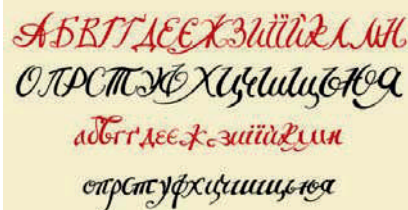 АБВГҐДЕЄЖЗИІЇЙКЛМН
ОПРСТУФХЦЧШЩЬЮЯ
абвгґдеєжзиіїйклмн
опрстуфхцчшщьюя